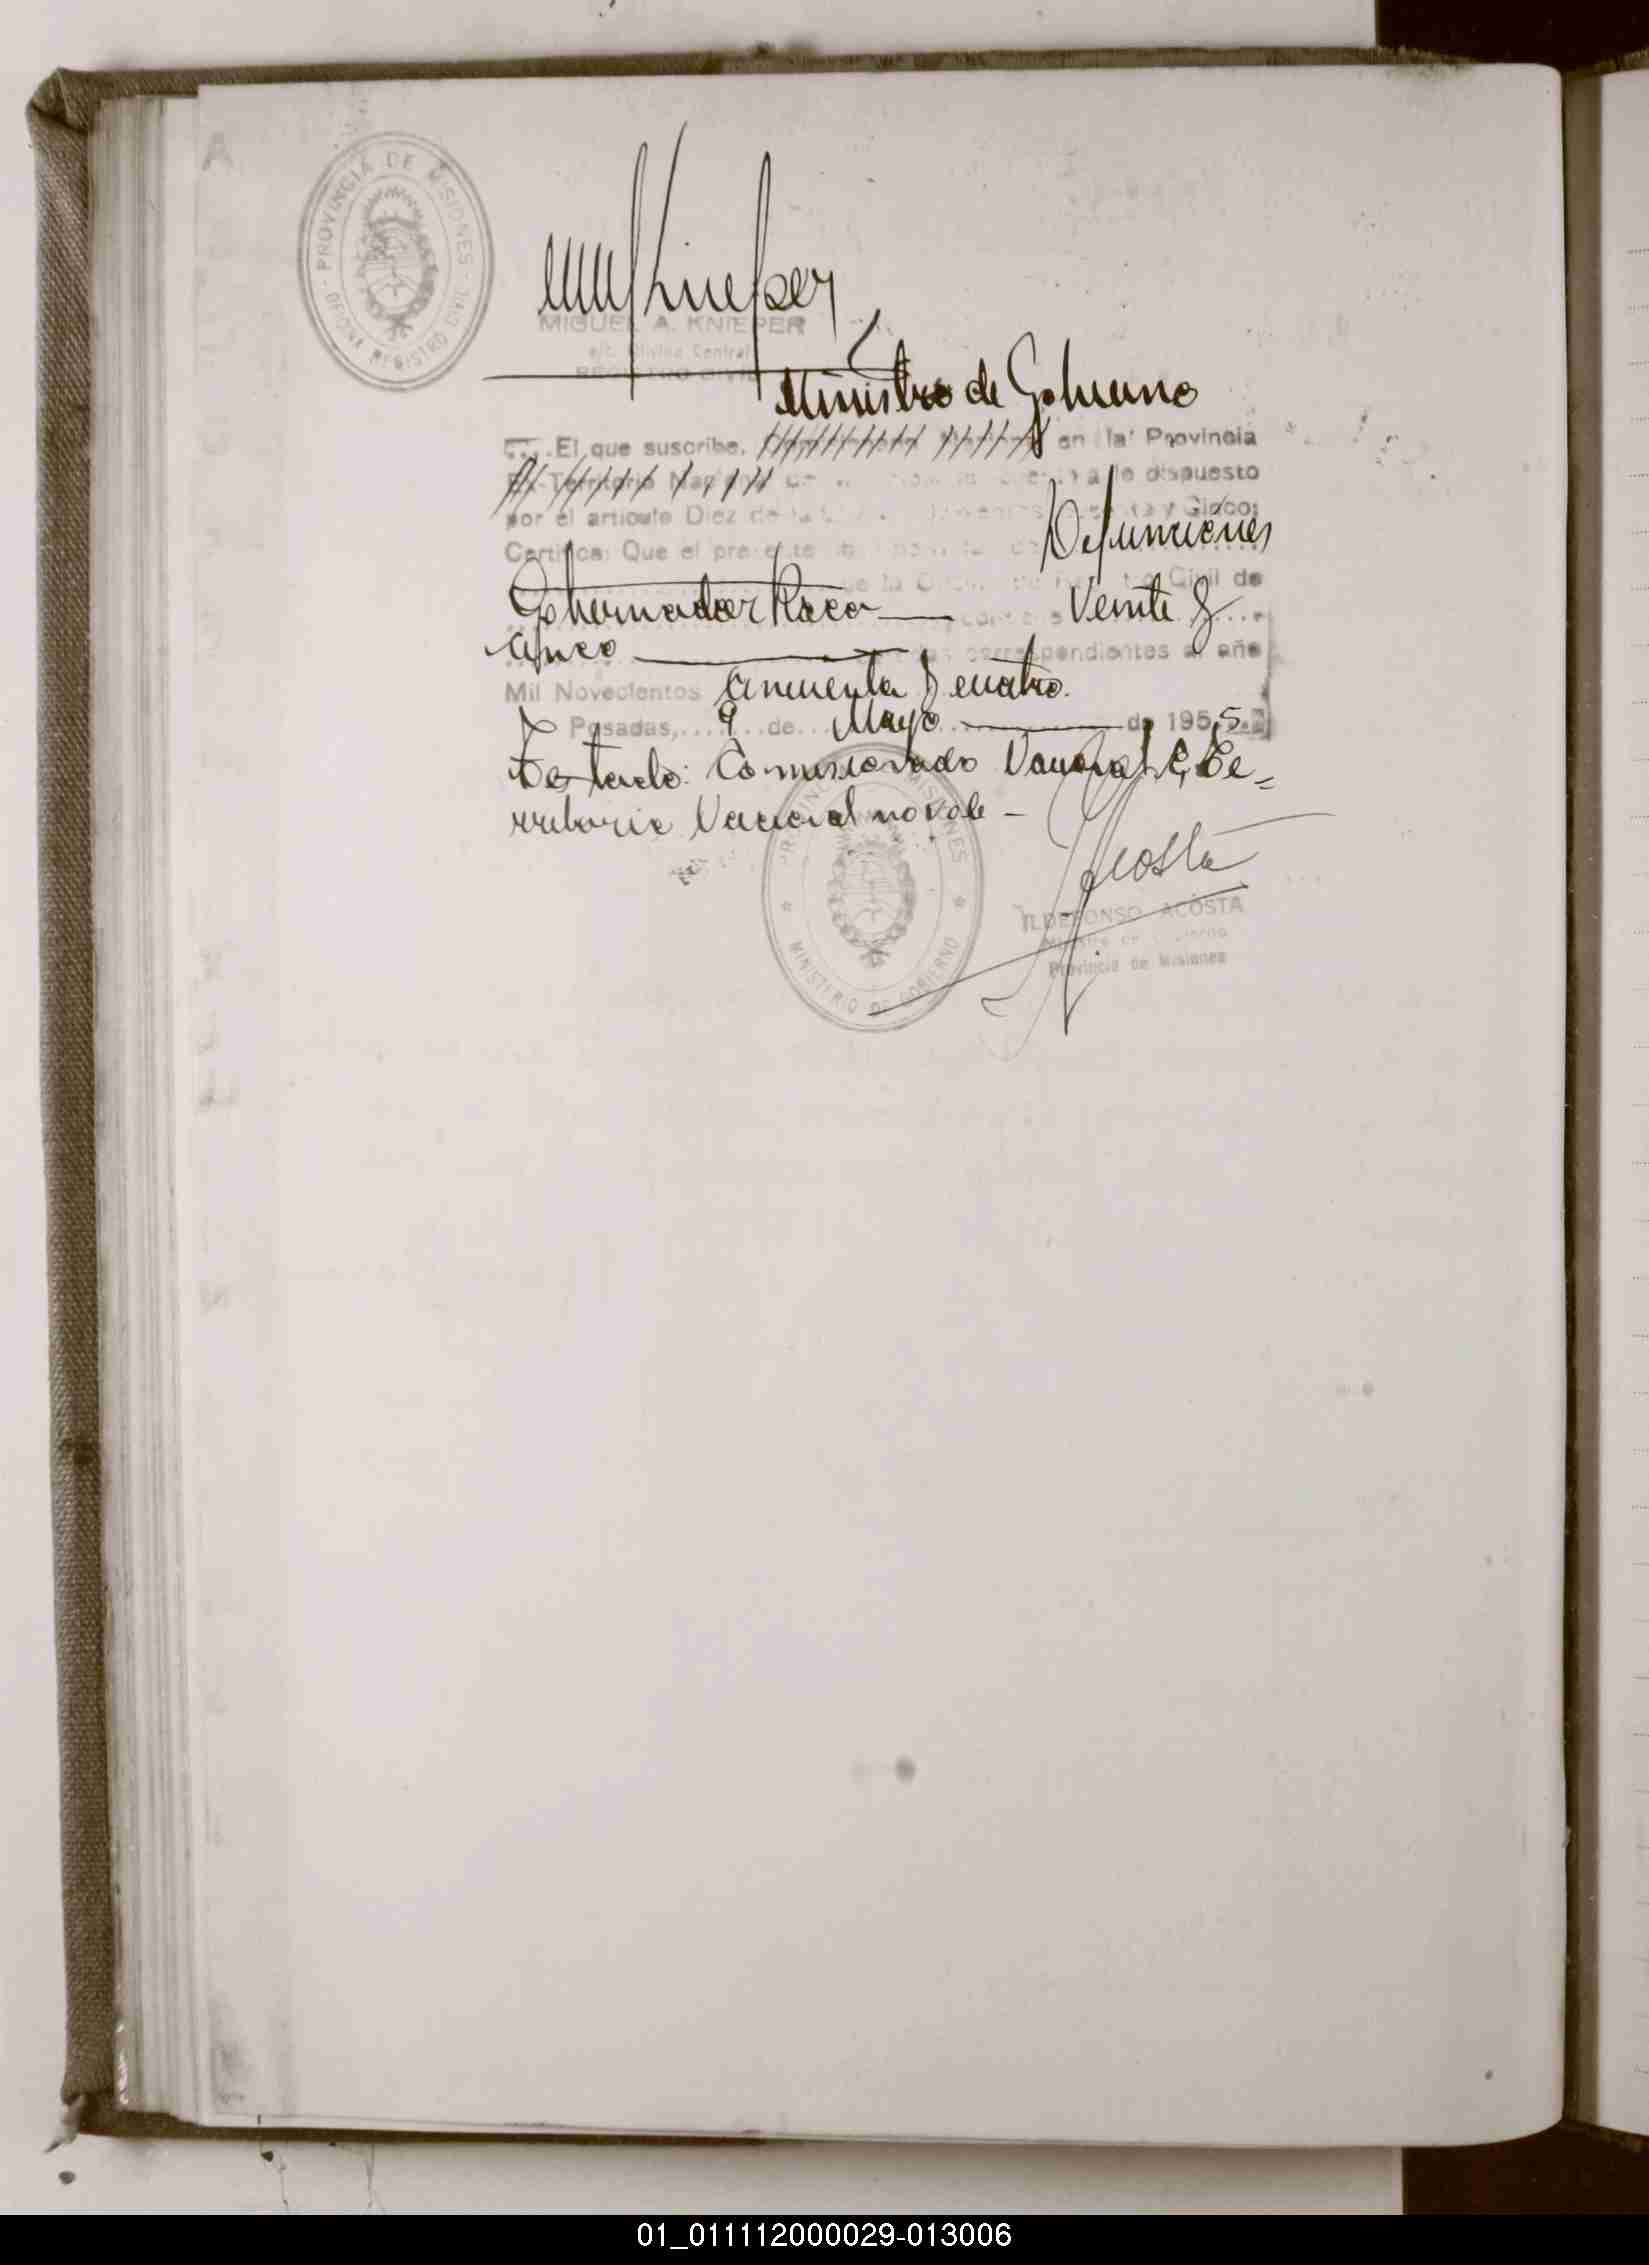 PROVINCIA DE MISIONES
OFICINA REGISTRO CIVIL
MIGUEL A. KNIEPER
Oficina Central
REGISTRO CIVIL
Ministro de Gobierno
El que suscribe, en la Provincia
Ex-Territorio Nacional dispuesto
por el artículo Diez de la y Cinco;
Certifica: Que el presente Defunciones
de la Civil de
Gobernador Roca Veinte y
cinco correspondientes al año
Mil Novecientos cincuenta y cuatro.
Posadas, 9 de Mayo de 1955.
Testado: Comisionado Nacional, Te=
rritorio Nacional no vale -
Acosta
ILDEFONSO ACOSTA
Ministro de Gobierno
Provincia de Misiones
PROVINCIA MISIONES
MINISTERIO DE GOBIERNO
01_011112000029-013006